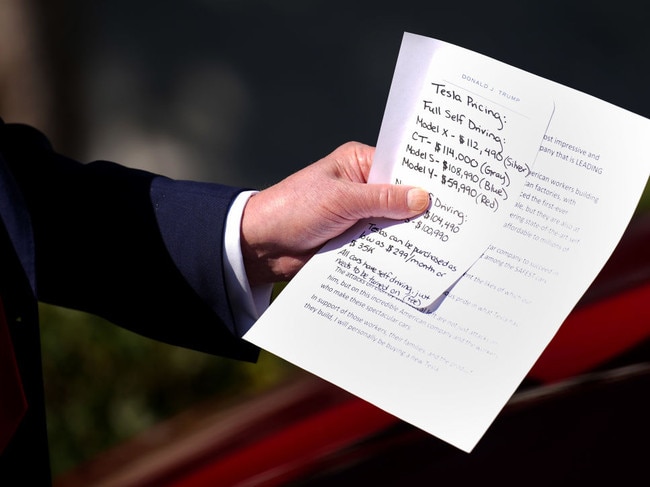 DONALD J. TRUMP
Tesla Pricing:
Full Self Driving:
Model X - $112,490 (Silver)
CT - $114,000 (Gray)
Model S - $108,990 (Blue)
Model Y - $59,990 (Red)
Driving:
$104,490
S - $100,990
Teslas can be purchased as
low as $299/month or
$35K
All cars have self driving, just
needs to be turned on
ost impressive and
pany that is LEADING
merican workers building
an factories, with
ced the first ever
kle, but they are also at
ering state of the art self
affordable to millions of
car company to succeed in
among the SAFEST cars
the likes of which our
pride in what Tesla has
The attacks are not just attacks on
him, but on this incredible American company and the workers
who make these spectacular cars.
In support of those workers, their families, and the product
they build, I will personally be buying a new Tesla.